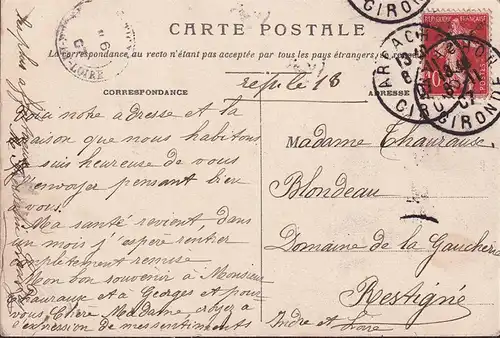 CARTE POSTALE
La correspondance au recto n'étant pas acceptée par tous les pays étrangers, se
CORRESPONDANCE
ADRESSE
notre adresse et la
maison que nous habitons
suis heureuse de vous
l'envoyer pensant bien
vous.
Ma santé revient, dans
un mois j'espère rentrer
complètement remise
Mon bon souvenir à Monsieur
Chauraux et à Georges et pour
vous Chère Madame, croyez à
l'expression de mes sentiments
Madame Chauraux
Blondeau
Domaine de la Gaucherie
Restigné
Indre et Loire
ARCACHON
GIRONDE
LOIRE